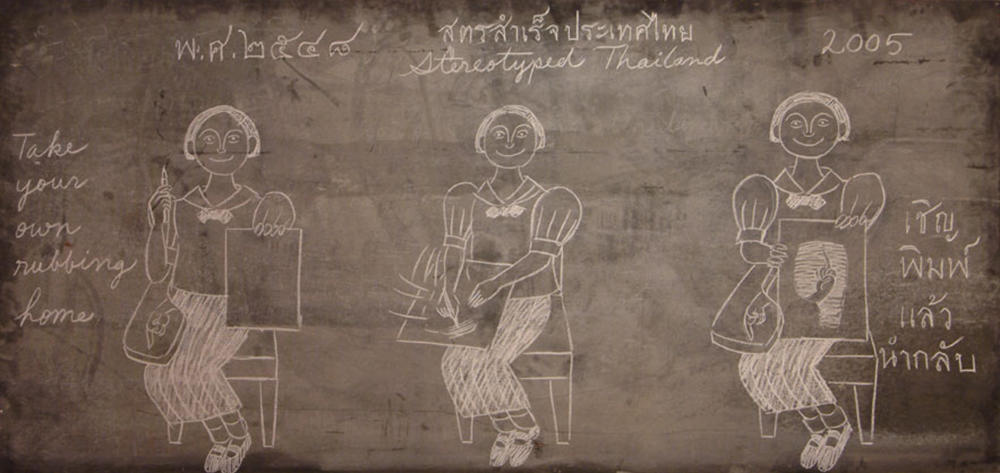 พ.ศ.๒๕๔๘
สูตรสำเร็จประเทศไทย
Stereotyped Thailand
2005
Take
your
own
rubbing
home
เชิญ
พิมพ์
แล้ว
นำกลับ